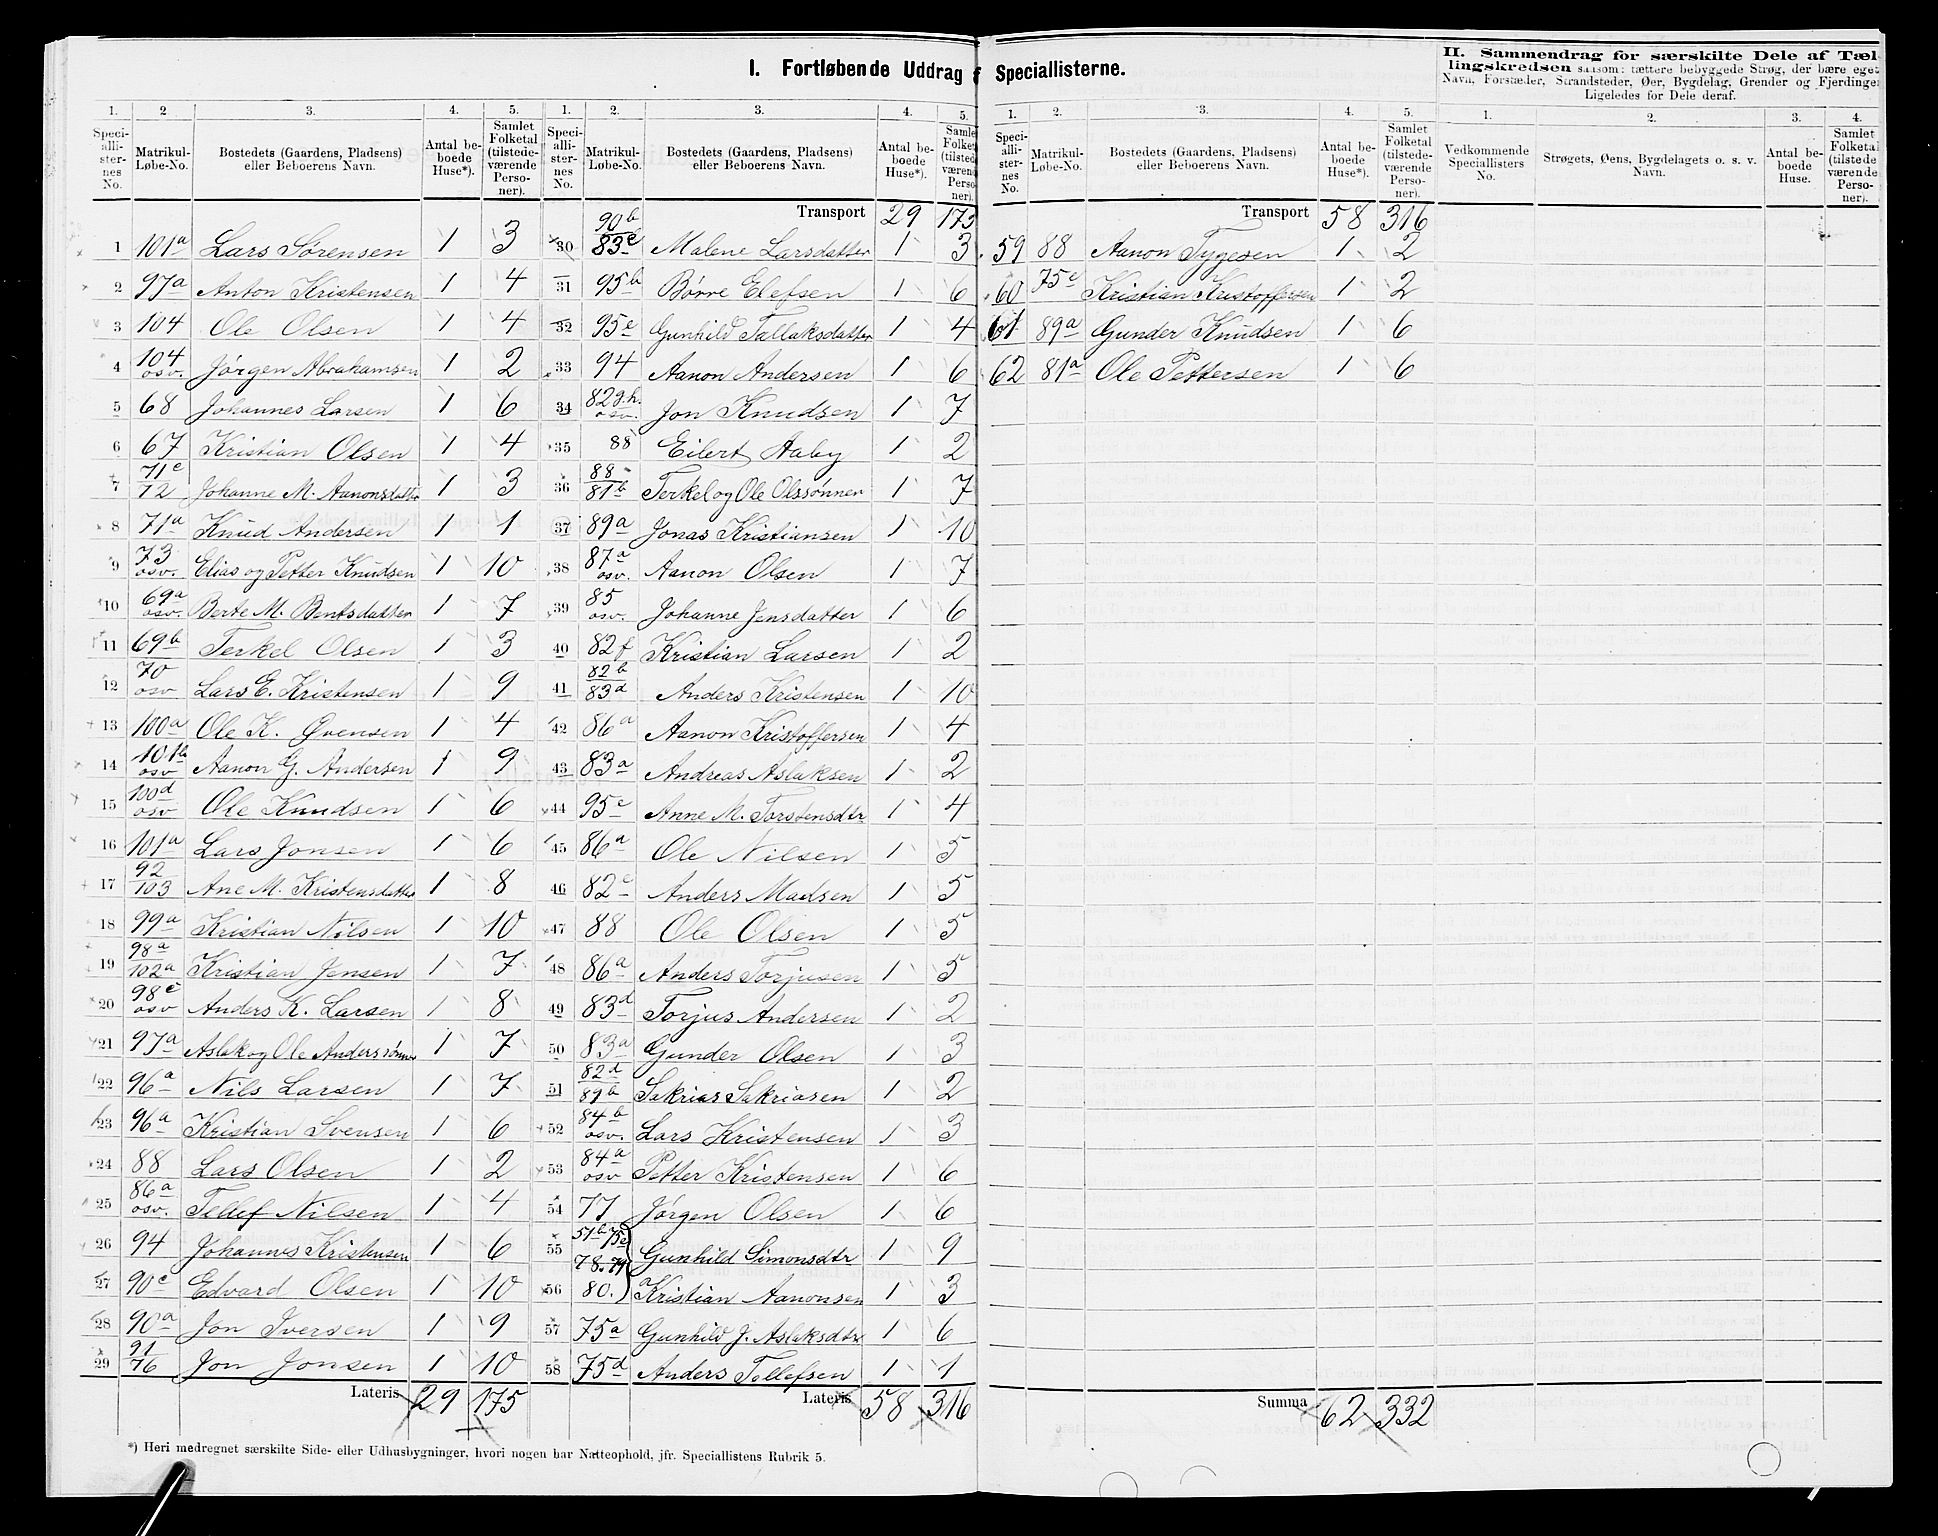 I. Fortløbende Uddrag f Speciallisterne.
II. Sammendrag for særskilte Dele af Tæl-
lingskredsen saasom: tættere bebyggede Strøg, der bære eget
Navn, Forstæder, Strandsteder, Øer, Bygdelag, Grender og Fjerdinger
Ligeledes for Dele deraf.
1. 2 3. 4. 5.
Speciallisternes No. Matrikul-Løbe-No. Bostedets (Gaardens, Pladsens) eller Beboerens Navn. Antal beboede Huse*). Samlet Folketal (tilstedeværende Personer).
1 101a Lars Sørensen 1 3
2 97a Anton Kristensen 1 4
3 104 Ole Olsen 1 4
4 104 osv. Jørgen Abrahamsen 1 2
5 68 Johannes Larsen 1 6
6 67 Kristian Olsen 1 4
7 71c 72 Johanne M. Aanonsdatter 1 3
8 71a Knud Andersen 1 1
9 73 osv. Elias og Petter Knudsen 1 10
10 69a osv. Berte M. Bentsdatter 1 7
11 69b Terkel Olsen 1 3
12 70 osv Lars E. Kristensen 1 9
13 100a Ole K. Øvensen 1 4
14 101b osv Aanon G. Andersen 1 9
15 100d osv Ole Knudsen 1 6
16 101a Lars Jonsen 1 6
17 92 103 Ane M. Kristensdatter 1 8
18 99a Kristian Nilsen 1 10
19 98a 102a Kristian Jensen 1 7
20 98c osv Anders K. Larsen 1 8
21 97a Aslak og Ole Anderssønner 1 7
22 96a Nils Larsen 1 7
23 96a Kristian Svensen 1 6
24 88 Lars Olsen 1 2
25 86a osv. Tellef Nilsen 1 4
26 94 Johannes Kristensen 1 6
27 90c Edvard Olsen 1 10
28 90a Jon Iversen 1 9
29 91 76 Jon Jonsen 1 10
Lateris 29 175
*) Heri medregnet særskilte Side- eller Udhusbygninger, hvori nogen har Natteophold, jfr. Speciallistens Rubrik 5.
1. 2. 3. 4. 5.
Speciallisternes No. Matrikul-Løbe-No. Bostedets (Gaardens, Pladsens) eller Beboerens Navn. Antal beboede Huse*).
Transport 29 175
30 90b 83e Malene Larsdatter 1 3
31 95b Børre Elefsen 1 6
32 95e Gunhild Tallaksdatter 1 4
33 94 Aanon Andersen 1 6
34 82g.h. osv. Jon Knudsen 1 7
35 88 Eilert Aaby 1 2
36 88 81b Terkel og Ole Olssønner 1 7
37 89a Jonas Kristiansen 1 10
38 87a osv. Aanon Olsen 1 7
39 85 osv. Johanne Jensdatter 1 6
40 82f Kristian Larsen 1 2
41 82b 83d Anders Kristensen 1 10
42 86a Aanon Kristoffersen 1 4
43 83a Andreas Aslaksen 1 2
44 95c Anne M. Torstensdtr 1 4
45 86a Ole Nilsen 1 5
46 82c Anders Madsen 1 5
47 88 Ole Olsen 1 5
48 86a Anders Torjusen 1 5
49 83d Torjus Andersen 1 2
50 83a Gunder Olsen 1 3
51 82d 89b Sakrias Sakriasen 1 2
52 84b osv. Lars Kristensen 1 3
53 84a osv Petter Kristensen 1 6
54 77 Jørgen Olsen 1 6
55 57b 75c 78.79 Gunhild Simonsdtr 1 9
56 80. Kristian Aanonsen 1 3
57 75a Gunhild J. Aslaksdtr 1 6
58 75d Anders Tellefsen 1 1
Lateris 58 316
1. 2. 3. 4. 5.
Speciallisternes No. Matrikul-Løbe-No. Bostedets (Gaardens. Pladsens) eller Beboerens Navn. Antal beboede Huse*). Samlet Folketal (tilstedeværende Personer).
Transport 58 316
59 88 Aanon Tygesen 1 2
60 75c Kristian Kristoffersen 1 2
61 89a Gunder Knudsen 1 6
62 81a Ole Pettersen 1 6
Summa 62 332
1. 2. 3. 4.
Vedkommende Speciallisters No. Strøgets, Øens, Bygdelagets o. s. v. Navn. Antal beboede Huse. Samlet Folketal (tilstedeværende Personer).